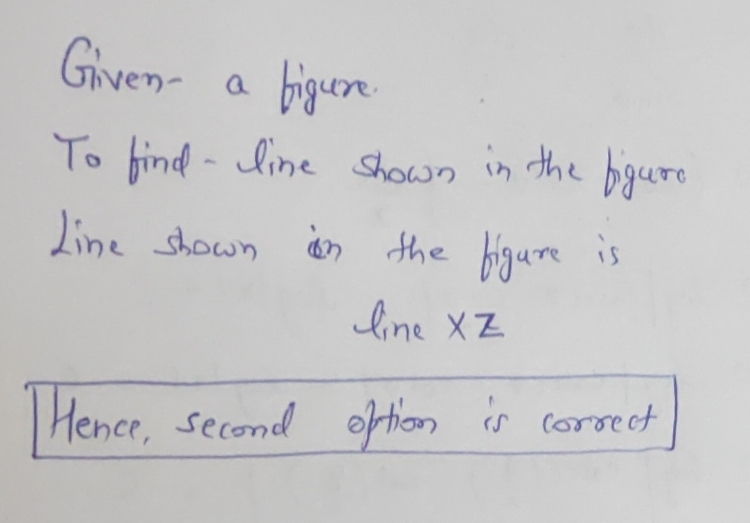 Given- a figure.
To find - line shown in the figure
Line shown in the figure is
line XZ
Hence, second option is correct